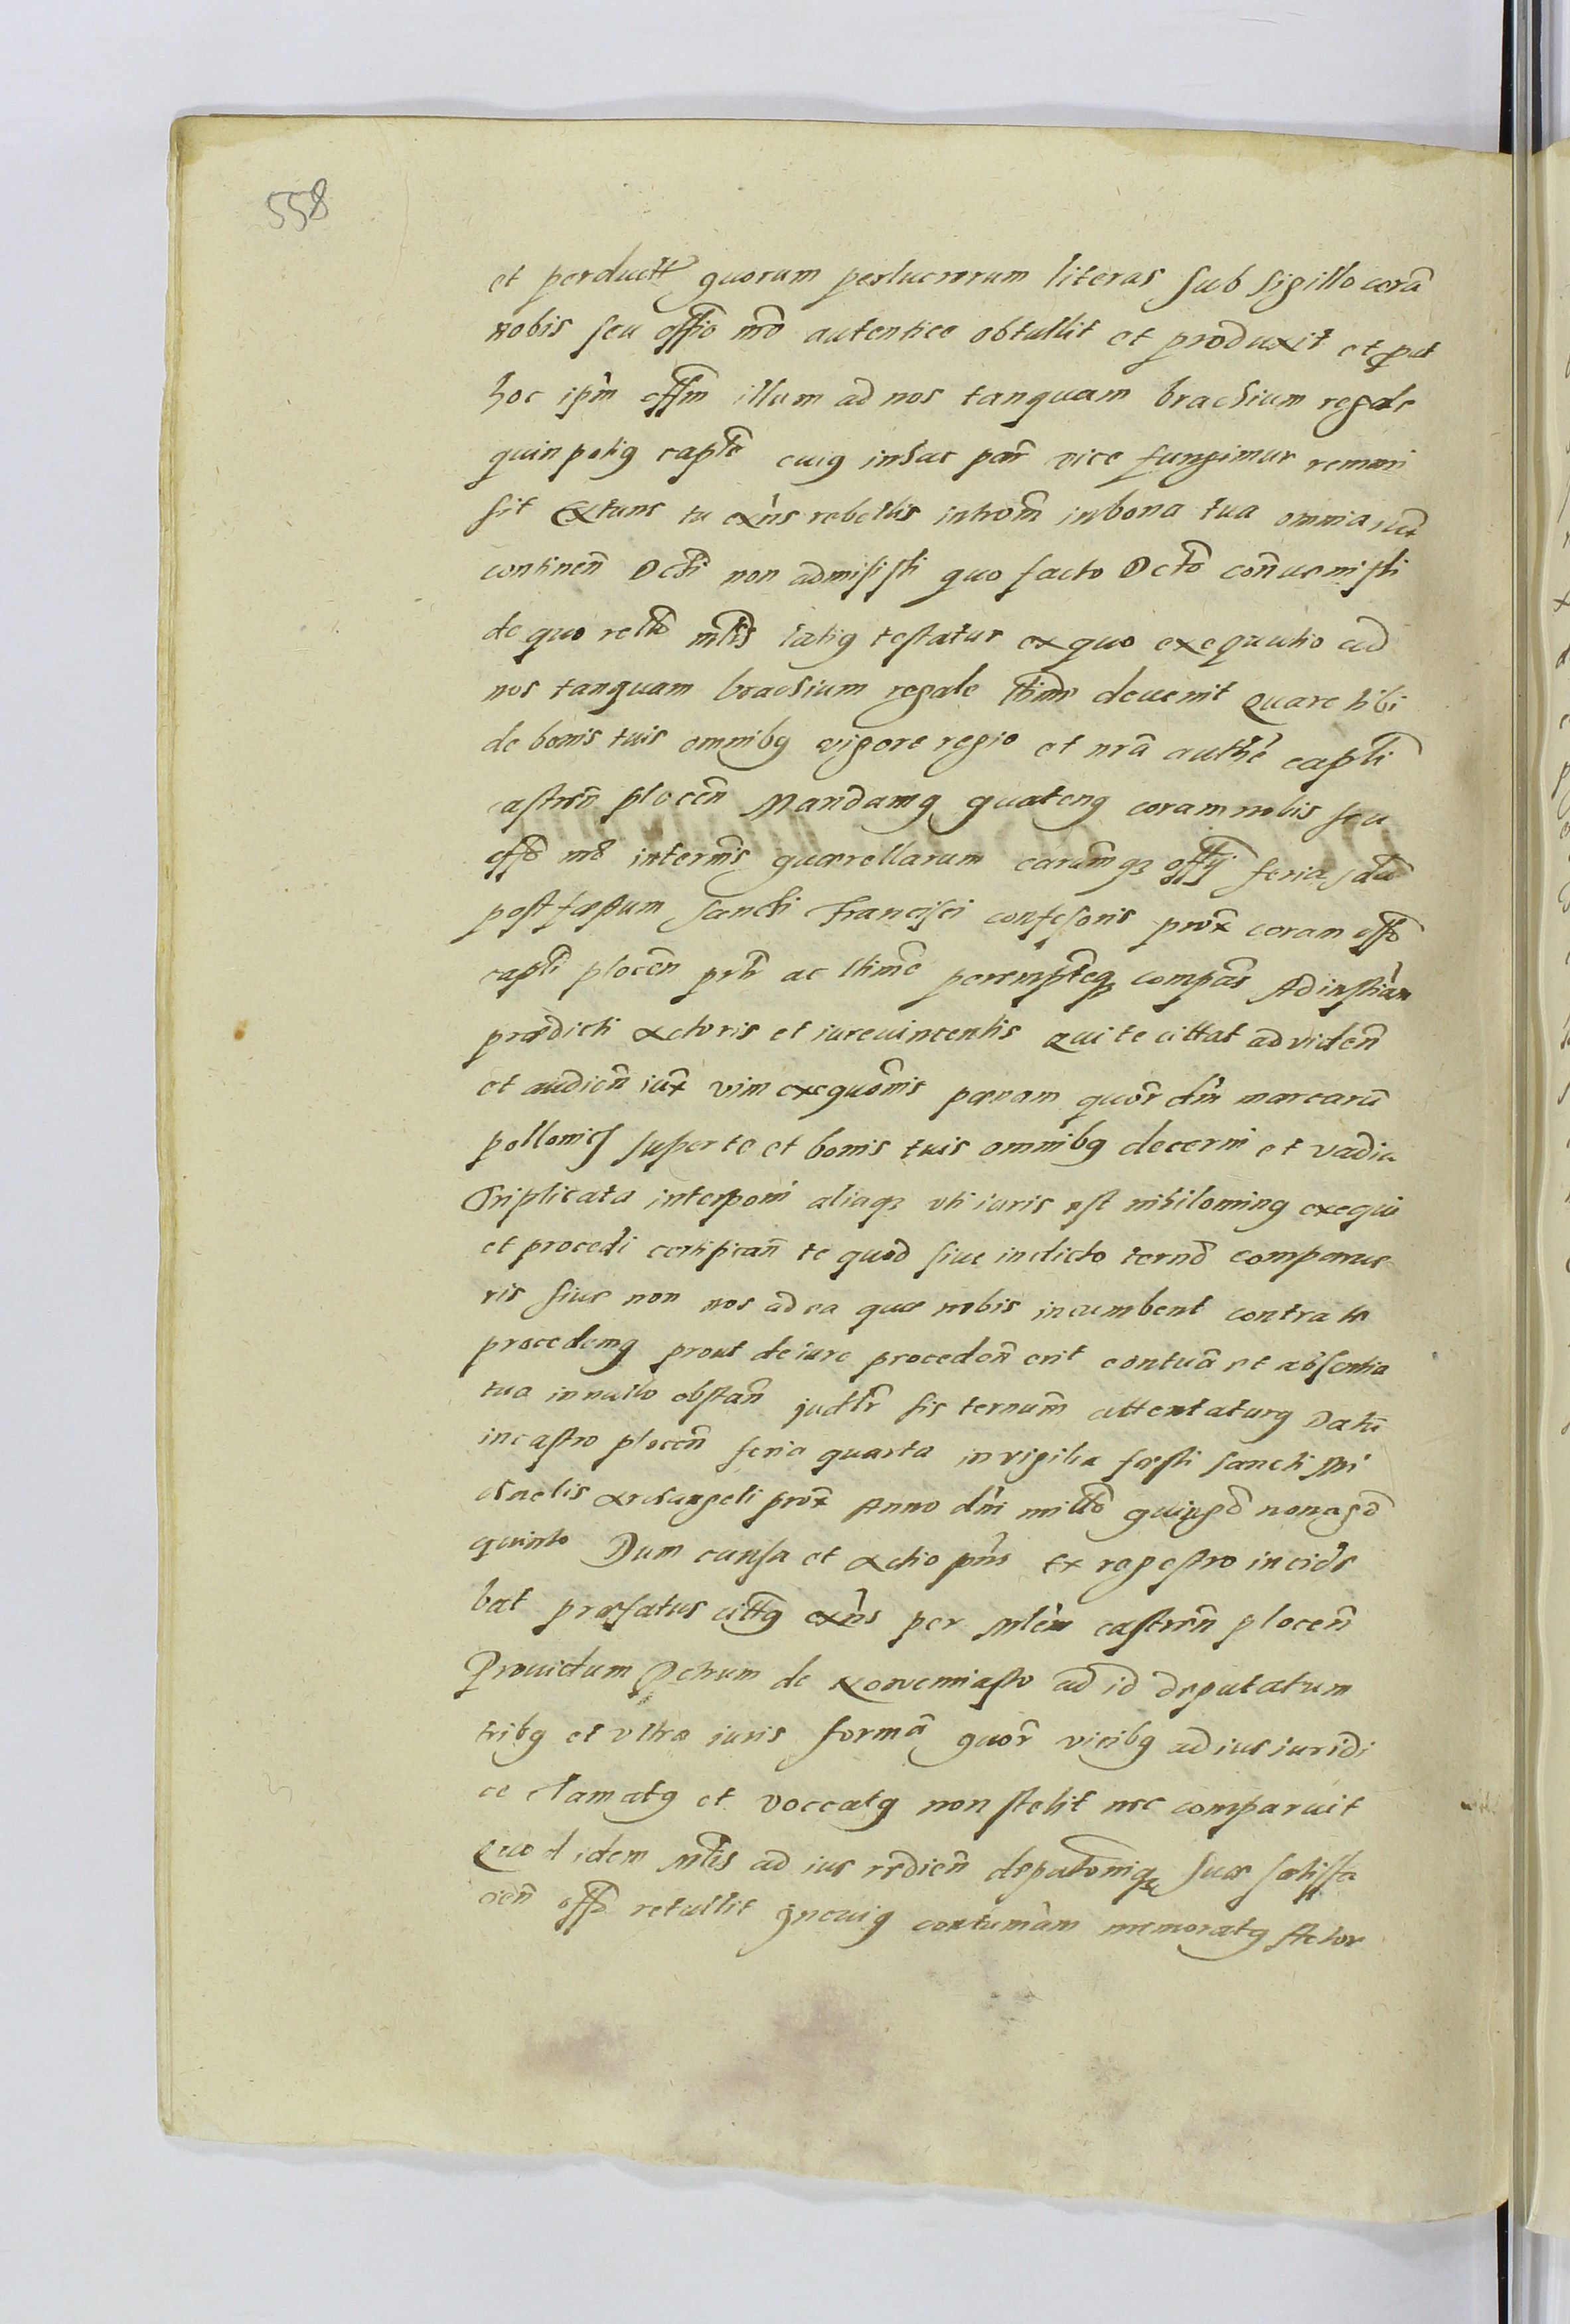 558
et perductt quorum perlucrorum literas sub sigillo corã
nobis seu offio nrõ autentice obtullit et produxit et
hoc ipm̃ offm̃ illum ad nos tanquam brachium regale
quin potig captẽ cuig in hac par̃ vice fungimur remmi
sit Extunc tu exñs rebellis introm̃ in bona tua omnia
continen̄ Octi non admisisti quo facto Octõ
de quo reltõ mltis latig testatur ex quo exequutio ad
nos tanquam brachium regale devenit Quare tibi
de bonis tuis omnibg vigore regio et nrã authẽ capti
castrẽn plocẽn Mandamg quateng coram nobis seu
offõ nrõ in termĩs quærellarum earumq offij feria
post fæstum sancti Francisci confessoris prox coram offõ
capti plocẽn ac ltimẽ peremptẽq compãs Ad instiam
prædicti actoris et iurevincentis Qui te cittat ad vidẽn
et audiẽn iux vim exequõnis pænam quõr cm̃ marcarũ
pollonicq super te et bonis tuis omnibg decerni et vadia
Triplicata interponi aliaq vti iuris est nihiloming exequi
et procedi certificañ te quod sive in dicto ternõ comparue
ris sive non nos ad ea quæ nobis incumbent contra te
procedemg prout de iure procedẽn erit contuã et absentia
tua in nullo obstañ his ternum̃ attentaturg Datũ
in castro plocẽn feria quarta in vigilia fæsti sancti Mi
chaelis archangeli prox Anno dñi millõ quingõ nonagõ
quinto Dum causa et actio pñs ex regestro incide
bat præfatus cittg exñs per Mlẽm castrẽn plocẽn
Providum Petrum de Nowemiasto ad id deputatum
tribg et vltra iuris formã quõr vicibg ad ius iuridi
ce clamatg et voccatg non stetit nec comparuit
Quod idem Mltis ad ius rẽdiẽn deputoniq suæ satisfa
ciẽn offõ retullit Jn cuig contumãm memoratg Actor